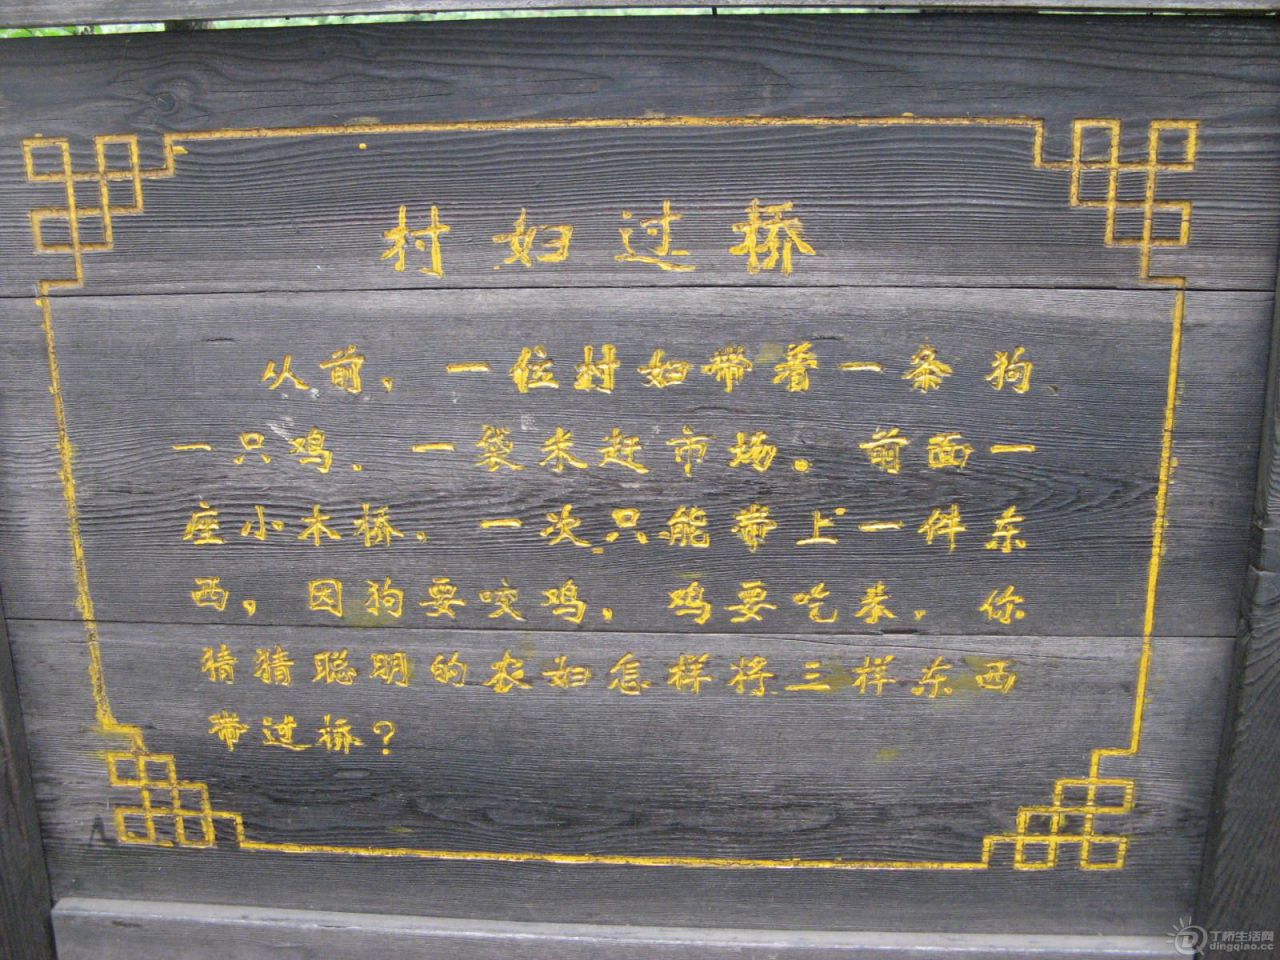 村妇过桥
从前，一位村妇带着一条狗
一只鸡、一袋米赶市场。前面一
座小木桥，一次只能带上一件东
西，因狗要咬鸡，鸡要吃米，你
猜猜聪明的农妇怎样将三样东西
带过桥?
丁桥生活网
dingqiao.cc